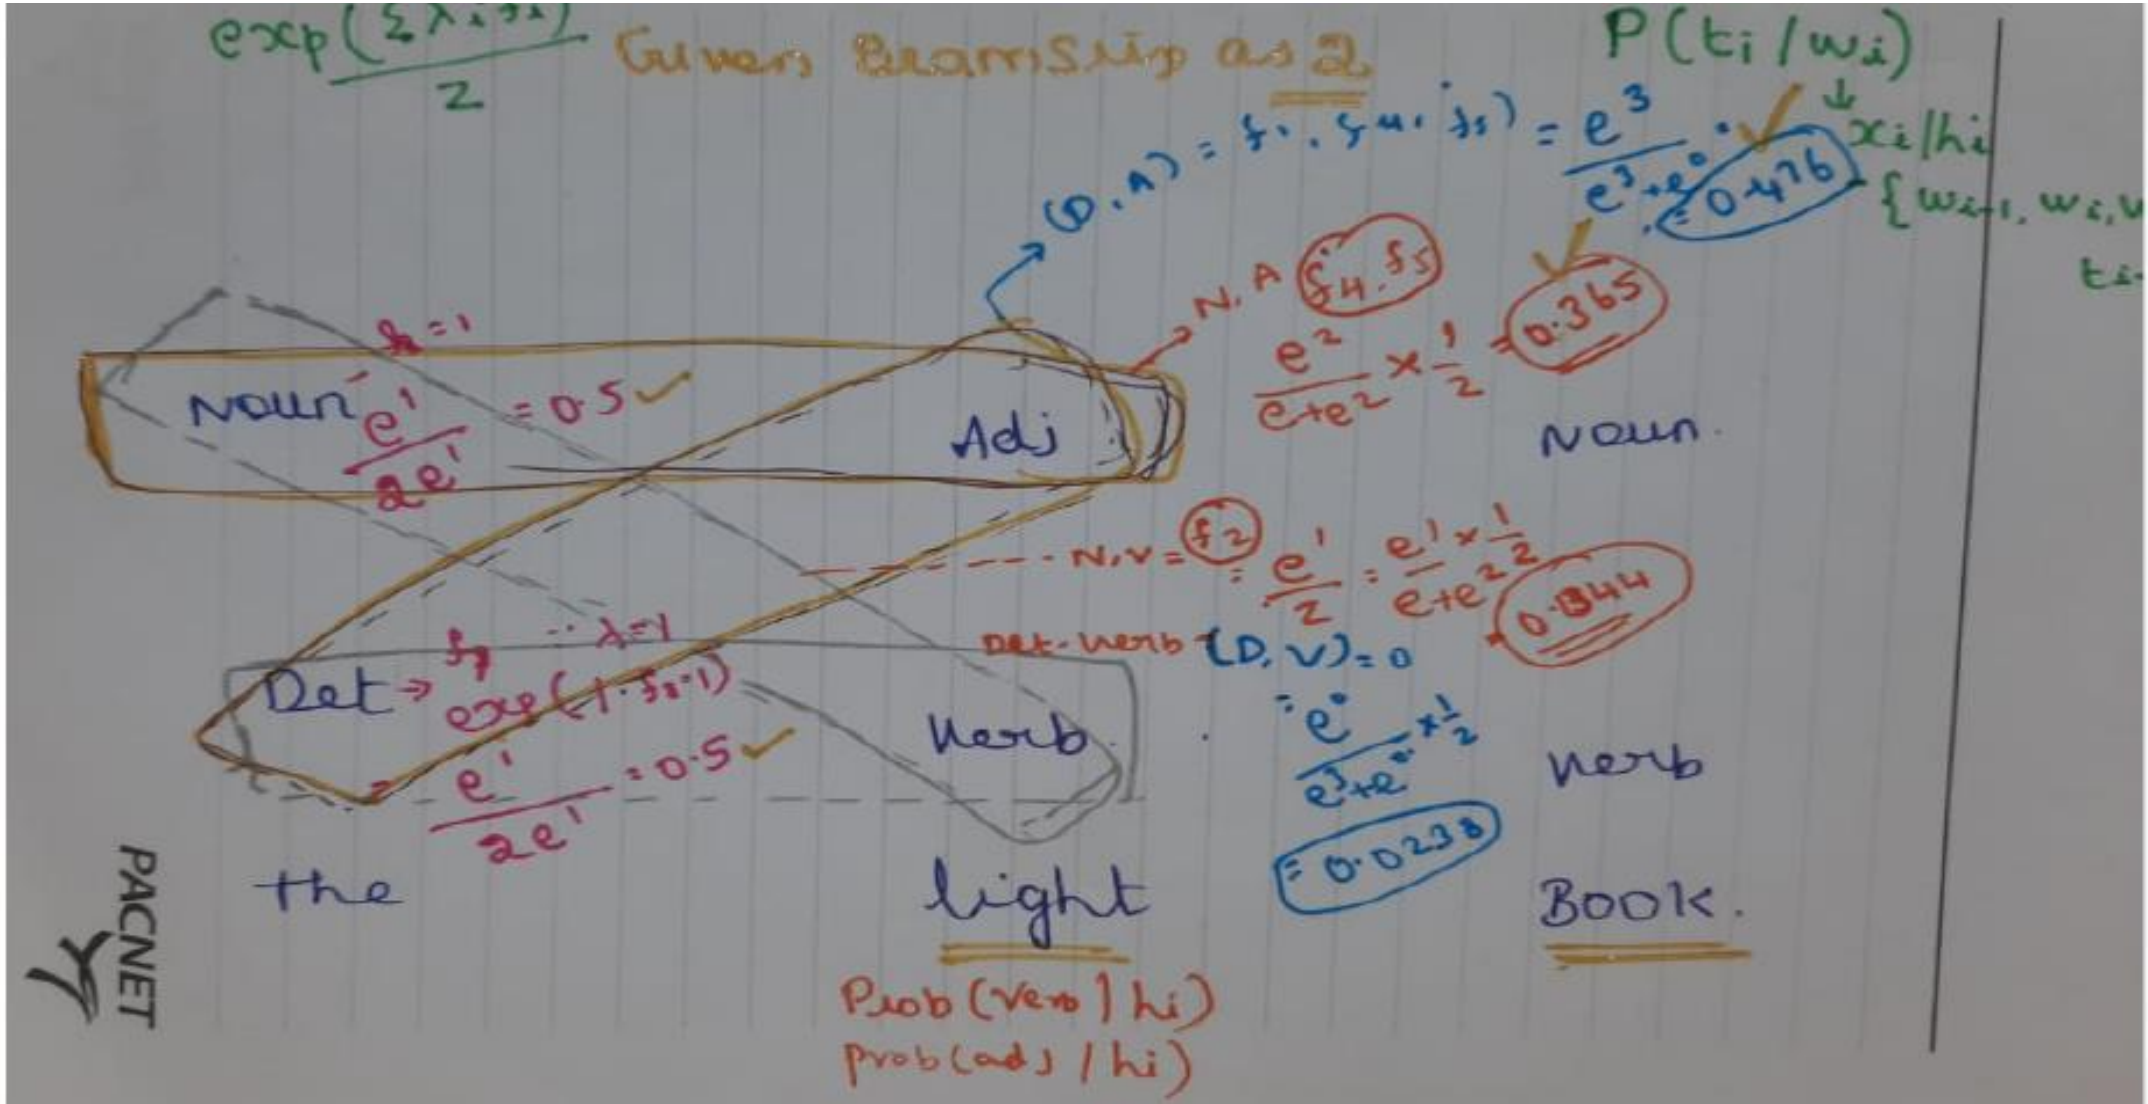 exp(Σλifi)
z
Given Beamsize as 2
P(ti/wi)
↓
xi/hi
{wi-1, wi, w
ti-
(D, A) = f1, f4, f5) = e³
e³+e⁰
= 0.476
N, A f4, f5
e² × 1
e+e² 2
= 0.365
= 1
Noun
e¹
2e¹
= 0.5 ✓
Adj
Noun.
N,V = f2 = e¹ = e¹ × 1
z e+e² 2
0.1344
Det-Verb (D,V)=0
= e⁰ × 1
e³+e⁰ 2
= 0.0238
Det → λ=1
exp(1·
e¹
2e¹
= 0.5 ✓
Verb.
Verb
the light Book.
PACNET
Prob(Verb|hi)
Prob(adj/hi)